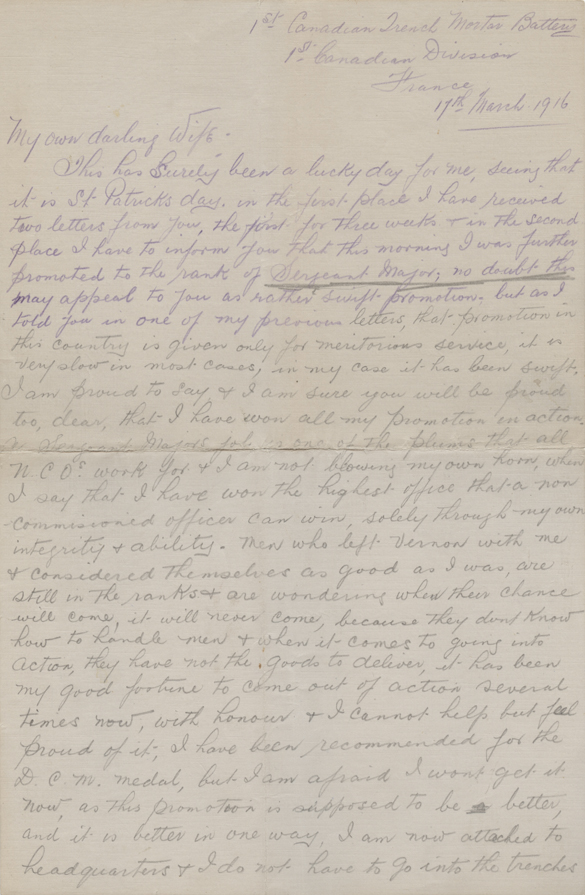 1st Canadian Trench Mortar Battery
1st Canadian Division
France
17th March 1916
My own darling Wife.
This has surely been a lucky day for me, seeing that
it is St Patricks day. in the first place I have received
two letters from you, the first for three weeks & in the second
place I have to inform you that this morning I was further
promoted to the rank of Sergeant Major; no doubt this
may appeal to you as rather swift promotion. but as I
told you in one of my previous letters, that promotion in
this country is given only for meritorious service, it is
very slow in most cases, in my case it has been swift.
I am proud to say, & I am sure you will be proud
too, dear, that I have won all my promotion in action.
a Sergeant Majors job is one of the plums that all
N.C.Os. work for & I am not blowing my own horn, when
I say that I have won the highest office that a non
commissioned officer can win, solely through my own
integrity & ability. Men who left Vernon with me
& considered themselves as good as I was, are
still in the ranks & are wondering when their chance
will come, it will never come, because they dont know
how to handle men & when it comes to going into
action, they have not the goods to deliver, it has been
my good fortune to come out of action several
times now, with honour & I cannot help but feel
proud of it, I have been recommended for the
D.C.M. medal, but I am afraid I wont get it
now, as this promotion is supposed to be better,
and it is better in one way, I am now attached to
headquarters & I do not have to go into the trenches